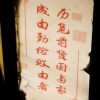 历览前贤国与家
成由勤俭败由奢